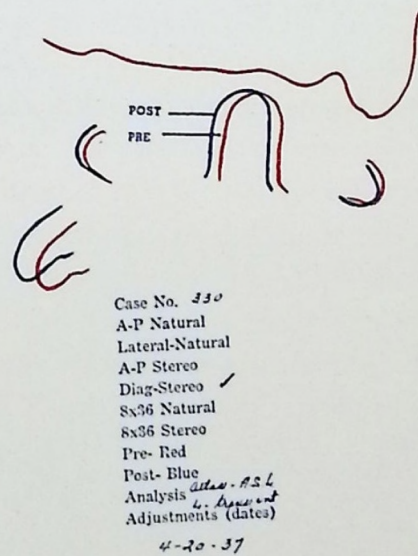 POST
PRE
Case No. 330
A-P Natural
Lateral-Natural
A-P Stereo
Diag-Stereo ✓
8x36 Natural
8x36 Stereo
Pre- Red
Post- Blue
Analysis Atlas - ASL
Adjustments (dates)
4-20-37